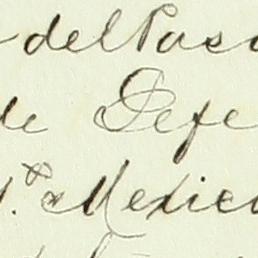 del Paso
de Defe
N. Mexico